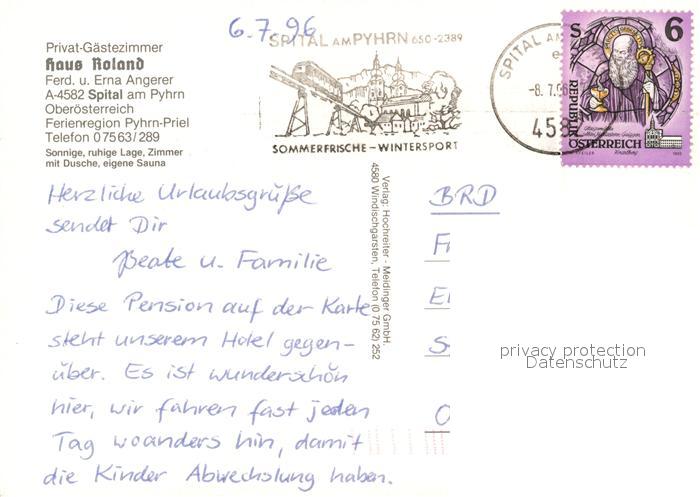 6.7.96
Privat-Gästezimmer
Haus Roland
Ferd. u. Erna Angerer
A-4582 Spital am Pyhrn
Oberösterreich
Ferienregion Pyhrn-Priel
Telefon 07563/289
Sonnige, ruhige Lage, Zimmer
mit Dusche, eigene Sauna
SPITAL AM PYHRN 650-2389
SOMMERFRISCHE-WINTERSPORT
SPITAL AM
-8. 7. 96
458
S 6
REPUBLIK
ÖSTERREICH
Herzliche Urlaubsgrüße
sendet Dir
Beate u. Familie
Diese Pension auf der Karte
steht unserem Hotel gegen-
über. Es ist wunderschön
hier, wir fahren fast jeden
Tag woanders hin, damit
die Kinder Abwechslung haben.
Verlag: Hochreiter - Meidinger GmbH.
4580 Windischgarsten, Telefon (0 75 62) 252
BRD
privacy protection
Datenschutz